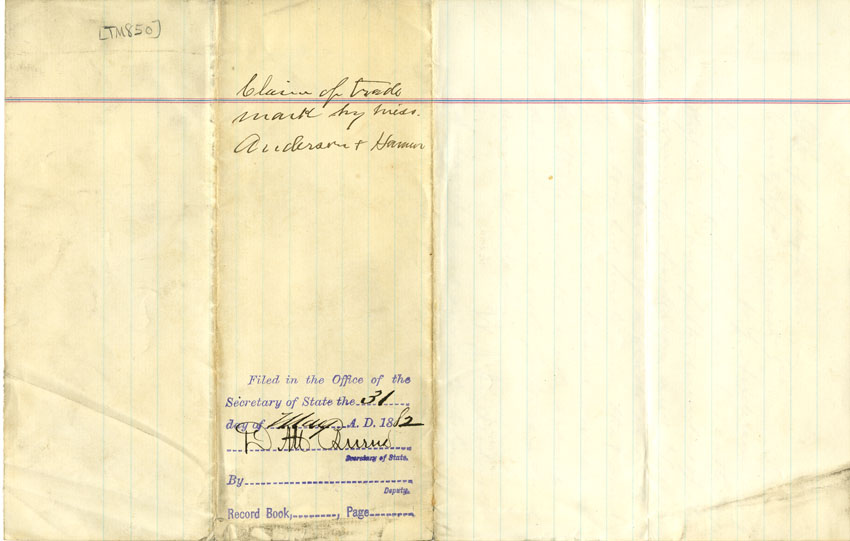 [TM850]
Claim of trade
mark by Mess.
Anderson &
Filed in the Office of the
Secretary of State the 31
day of May A. D. 1882
D. M. Burns
Secretary of State.
By
Deputy.
Record Book, , Page